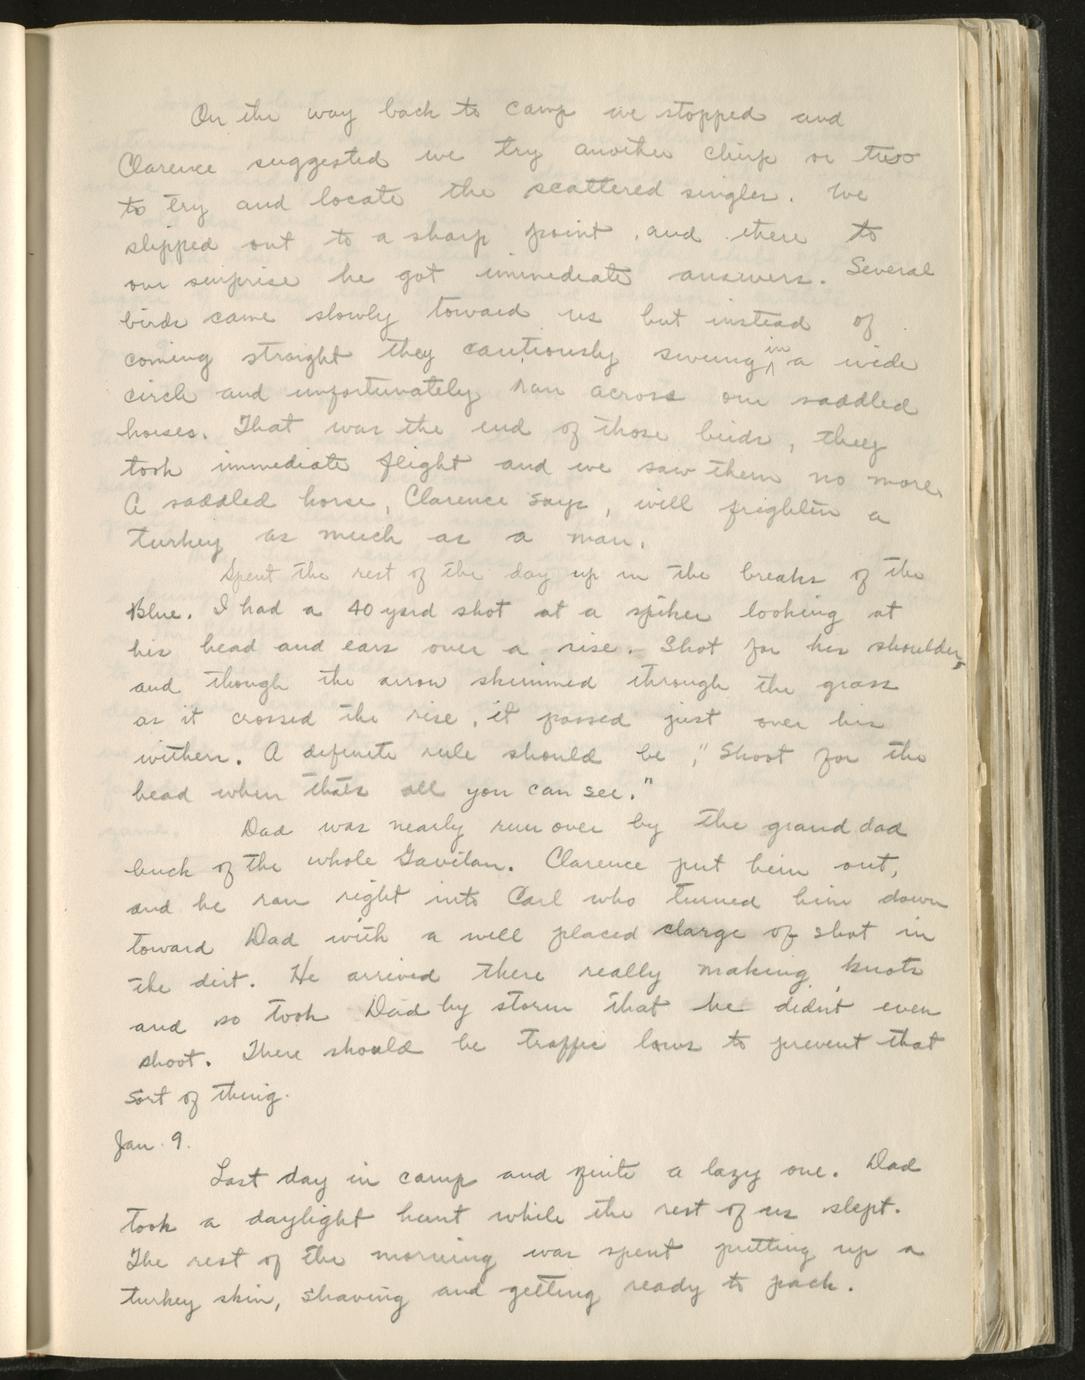 On the way back to camp we stopped and
Clarence suggested we try another chirp or two
to try and locate the scattered singles. We
slipped out to a sharp point, and there to
our surprise he got immediate answers. Several
birds came slowly toward us but instead of
coming straight they cautiously swung in a wide
circle and unfortunately ran across our saddled
horses. That was the end of those birds, they
took immediate flight and we saw them no more.
A saddled horse, Clarence says, will frighten a
turkey as much as a man.
Spent the rest of the day up in the breaks of the
Blue. I had a 40 yard shot at a spiker looking at
his head and ears over a rise. Shot for his shoulder,
and though the arrow skimmed through the grass
as it crossed the rise, it passed just over his
withers. A definite rule should be, "Shoot for the
head when thats all you can see."
Dad was nearly run over by the grand dad
buck of the whole Gavilan. Clarence put him out,
and he ran right into Carl who turned him down
toward Dad with a well placed charge of shot in
the dirt. He arrived there really making knots
and so took Dad by storm that he didn't even
shoot. There should be traffic laws to prevent that
sort of thing.
Jan. 9.
Last day in camp and quite a lazy one. Dad
took a daylight hunt while the rest of us slept.
The rest of the morning was spent putting up a
turkey skin, shaving and getting ready to pack.